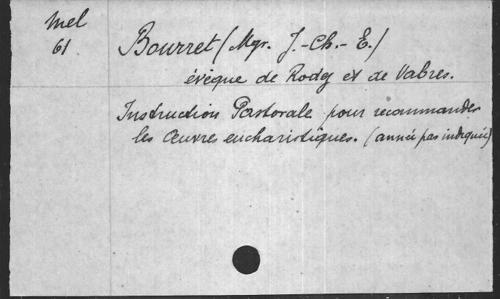 Mel
61
Bourret (Mgr. J.-Ch.-E.)
évêque de Rodez et de Vabres.
Instruction Pastorale pour recommander
les Œuvres eucharistiques. (année pas indiquée)